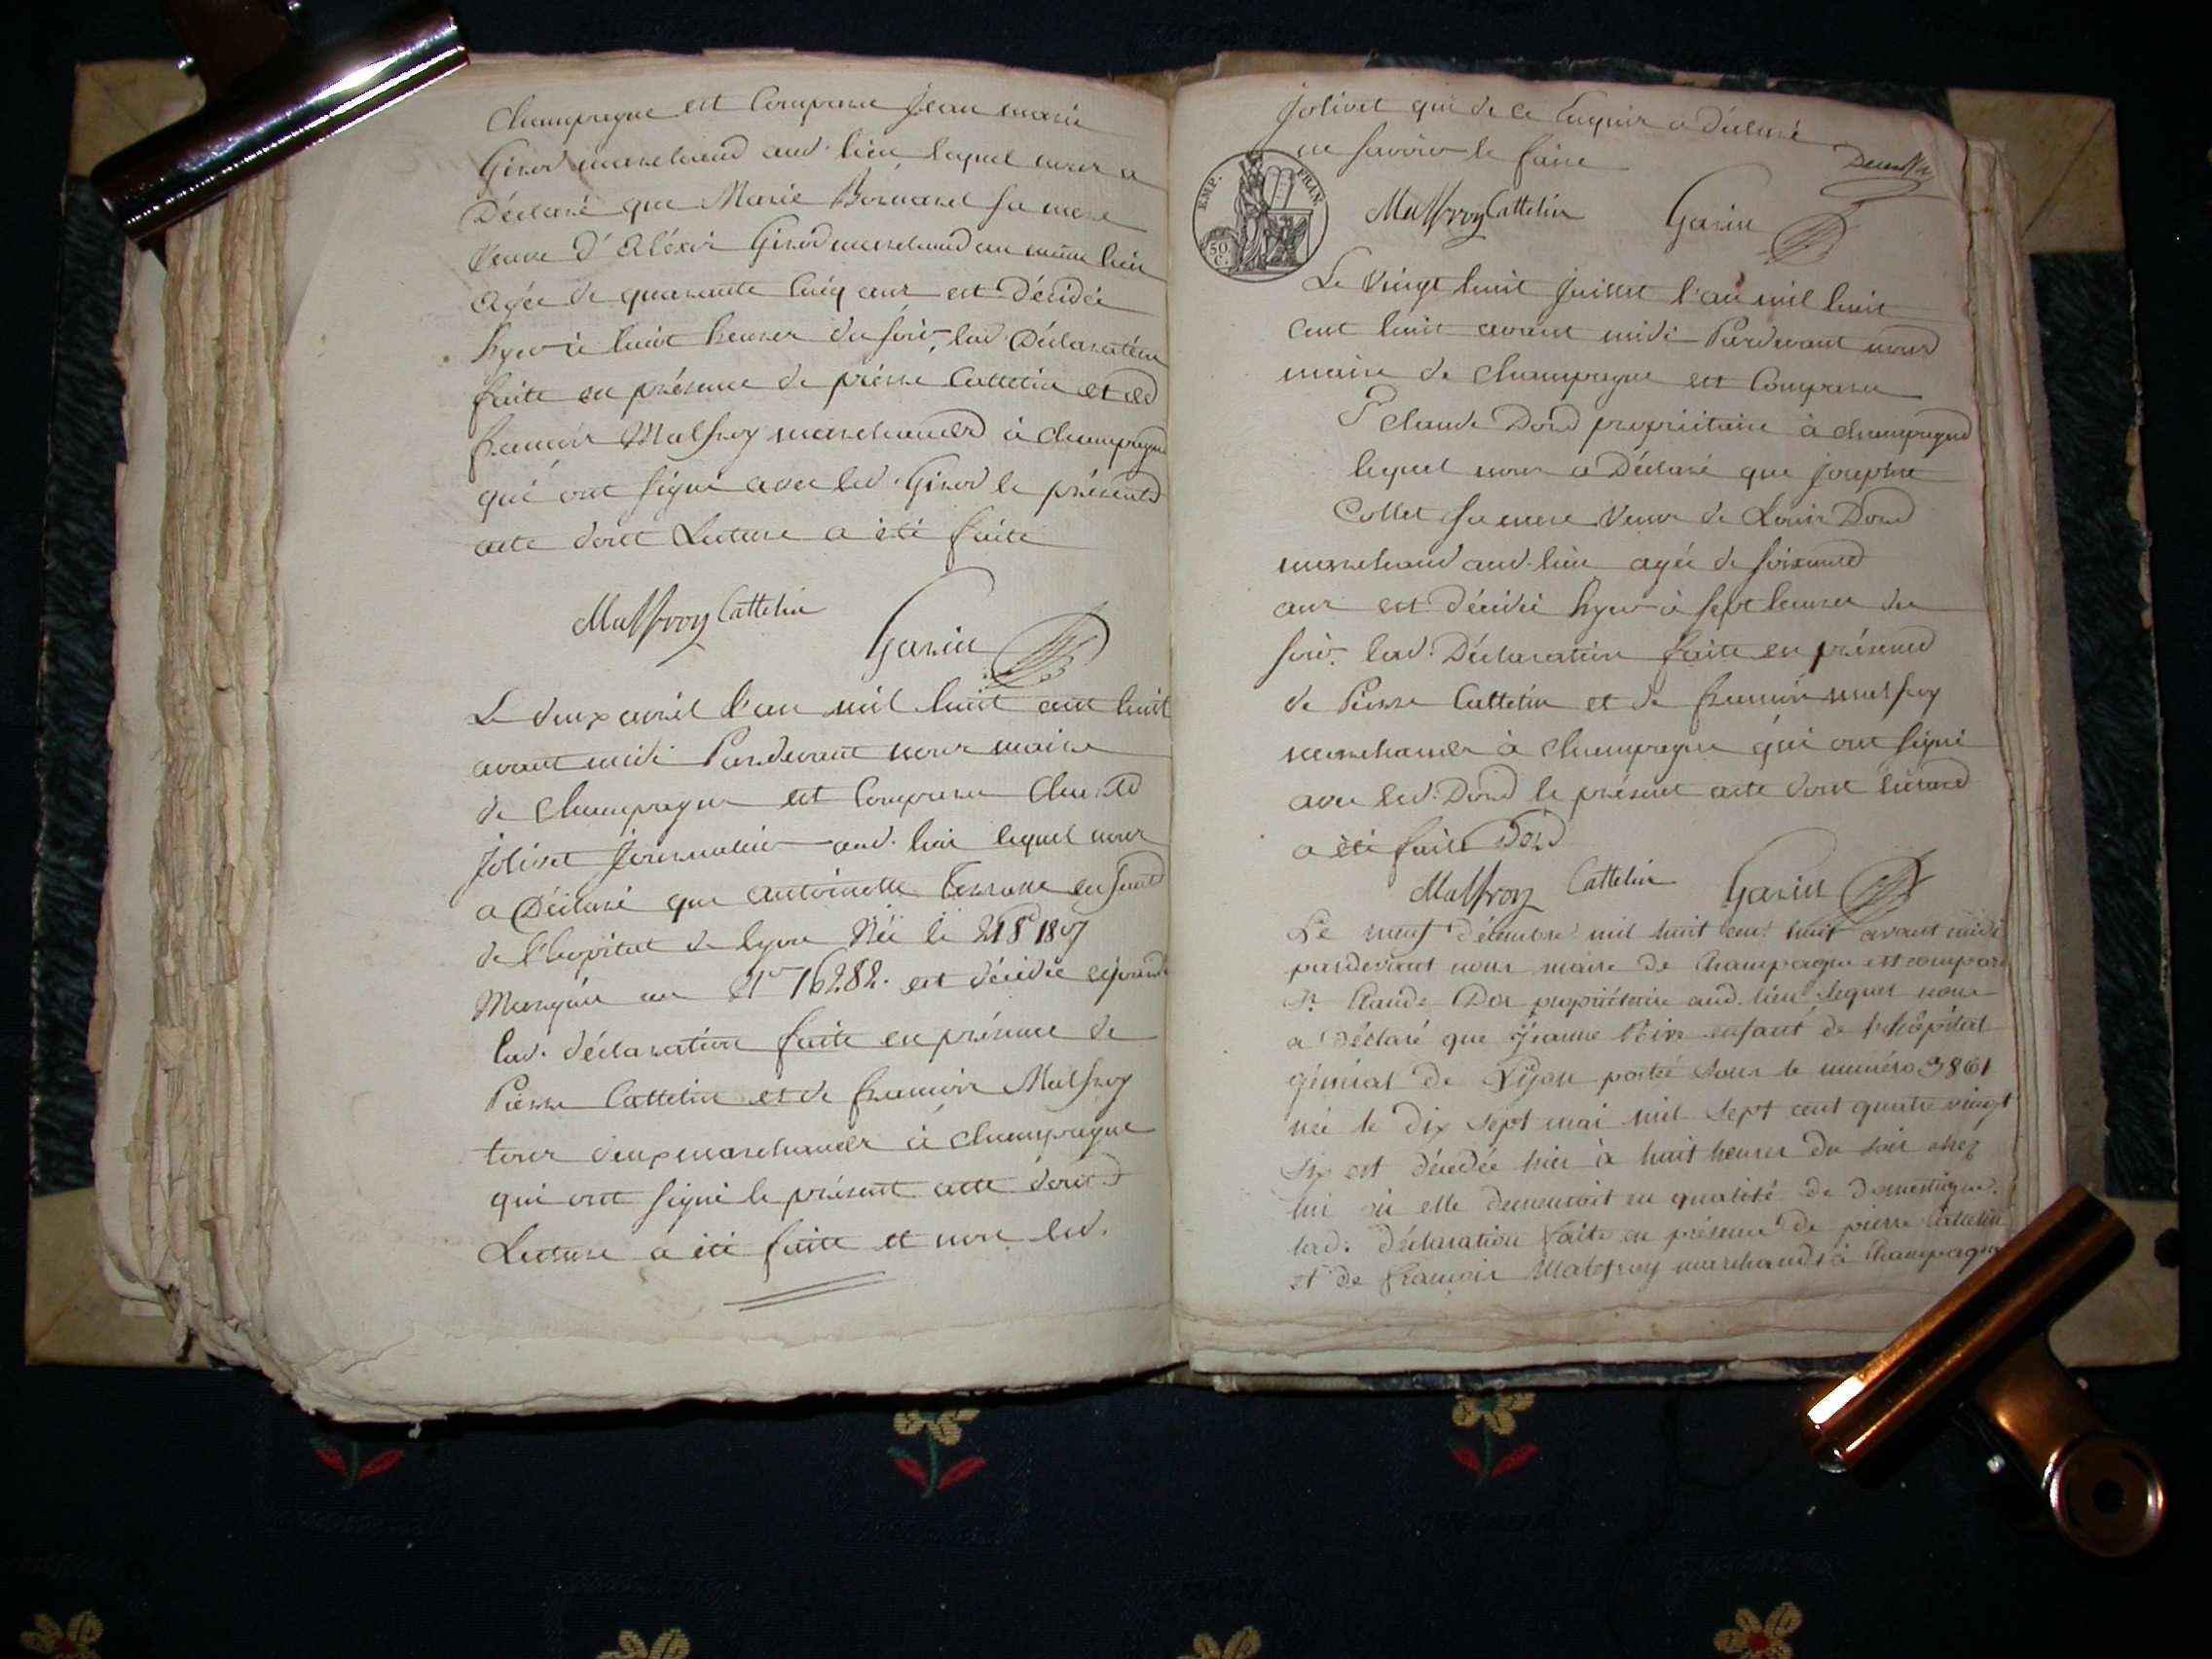 Champagne est Comparu Jean marie
Girod marchand aud. lieu lequel nous a
Déclaré que Marie Bornarel sa mere
Veuve d'Aléxis Girod marchand au même lieu
agée de quarante Cinq ans est Décédée
hyer à huit heures du soir, lad Déclaration
faite en présence de piérre Cattelin et de
françois Malfroy marchands à Champagne
qui ont signé avec led. Girod le présent
acte dont Lecture a été faite
Malfroy Cattelin
Garin
Le deux avril l'an mil huit cent huit
avant midi Pardevant nous maire
de Champagne est Comparu Claude
Jolivet Journalier aud. lieu lequel nous
a Déclaré que antoinette enfant
de l'hopital de lyon Née le 1807
Marquée au N° 16282. est décédée
lad. déclaration faite en présence de
Pierre Cattelin et de françois Malfroy
tous deux marchands à Champagne
qui ont signé le présent acte dont
Lecture a été faite et non led.
Jolivet qui de ce Enquis a Déclaré
ne savoir le faire
EMP. FRAN.
50 C.
Malfroy Cattelin
Garin
Le Vingt huit Juillet l'an mil huit
cent huit avant midi Pardevant nous
maire de Champagne est Comparu
Sr Claude Dord propriétaire à Champagne
lequel nous a Déclaré que josephte
Collet sa mere Veuve de Louis Dord
marchand aud. lieu agée de soixante
ans est décédée hyer à sept heures du
soir. lad. Déclaration faite en présence
de Pierre Cattelin et de françois malfroy
marchands à Champagne qui ont signé
avec led. Dord le présent acte dont lecture
a été faite Dord
Malfroy Cattelin Garin
Le neuf décembre mil huit cent huit avant midi
pardevant nous maire de Champagne est comparu
Sr Claude Dor propriétaire aud. lieu lequel nous
a déclaré que Jeanne enfant de l'hôpital
général de Lyon portée sous le numéro 3861
née le dix sept mai mil sept cent quatre vingt
six est décédée hier à huit heures du soir chez
lui où elle demeuroit en qualité de domestique.
lad. déclaration faite en présence de pierre Cattelin
et de françois Malfroy marchands à Champagne